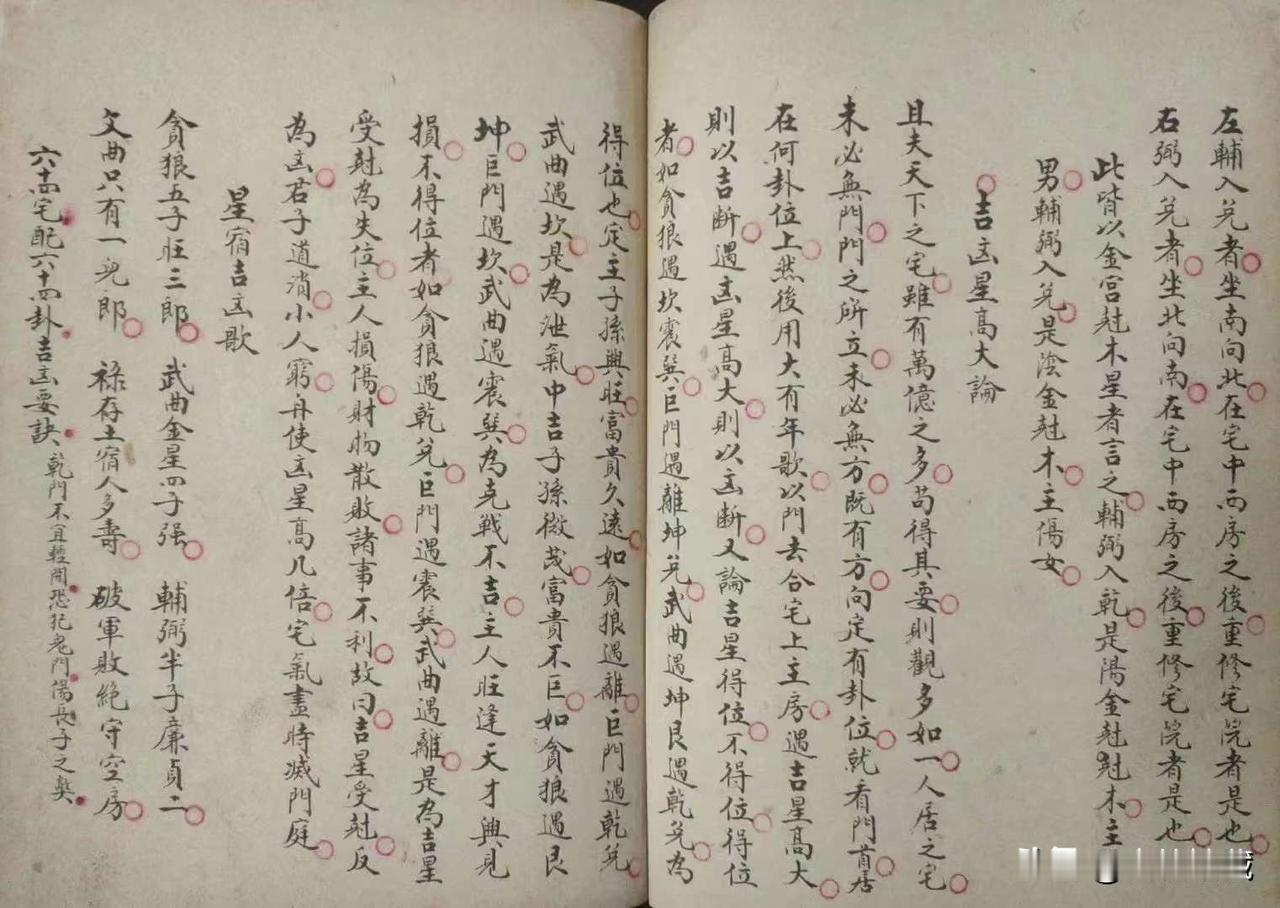 左輔入兌者坐南向北在宅中西房之後重修宅院者是也
右弼入兌者坐北向南在宅中西房之後重修宅院者是也
此皆以金宮尅木星者言之輔弼入乾是陽金尅尅木主
男輔弼入兌是陰金尅木主傷女
吉凶星高大論
且夫天下之宅雖有萬億之多苟得其要則觀多如一人居之宅
未必無門門之所立未必無方既有方向定有卦位就看門首居
在何卦位上然後用大有年歌以門去合宅上主房遇吉星高大
則以吉断遇凶星高大則以凶断又論吉星得位不得位得位
者如貪狼遇坎震巽巨門遇離坤兌武曲遇坤艮遇乾兌為
得位也定主子孫興旺富貴久遠如貪狼遇離巨門遇乾兌
武曲遇坎是為泄氣中吉子孫微茂富貴不巨如貪狼遇艮
坤巨門遇坎武曲遇震巽為克戦不吉主人旺逢天才興見
損不得位者如貪狼遇乾兌巨門遇震巽武曲遇離是為吉星
受尅為失位主人損傷財物散敗諸事不利故曰吉星受尅反
為凶君子道消小人窮舟使凶星高几倍宅氣盡時滅門庭
星宿吉凶歌
貪狼五子旺三郎 武曲金星四子强 輔弼半子廉貞二
文曲只有一兒郎 禄存土宿人多壽 破軍敗絶守空房
六十四宅配六十四卦吉凶要訣 乾門不宜輕開恐犯鬼門傷長子之獘